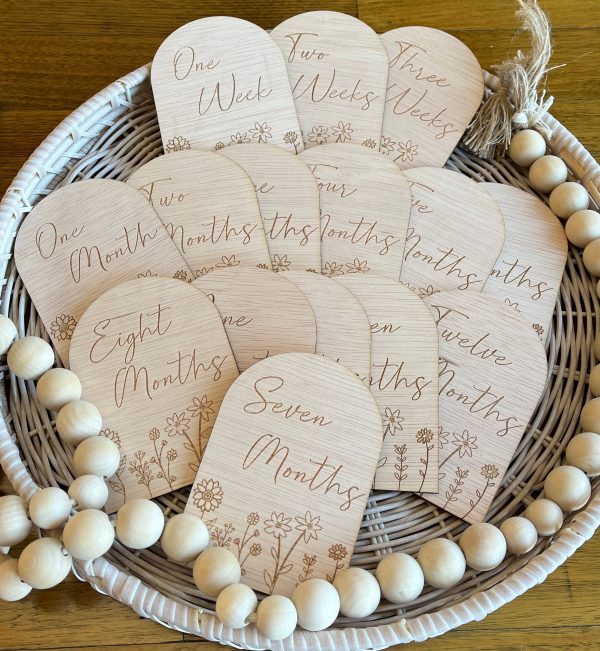 One
Week
Two
Weeks
Three
Weeks
One
Month
Two
Months
Four
Months
Five
Months
Months
Eight
Months
Twelve
Months
Seven
Months